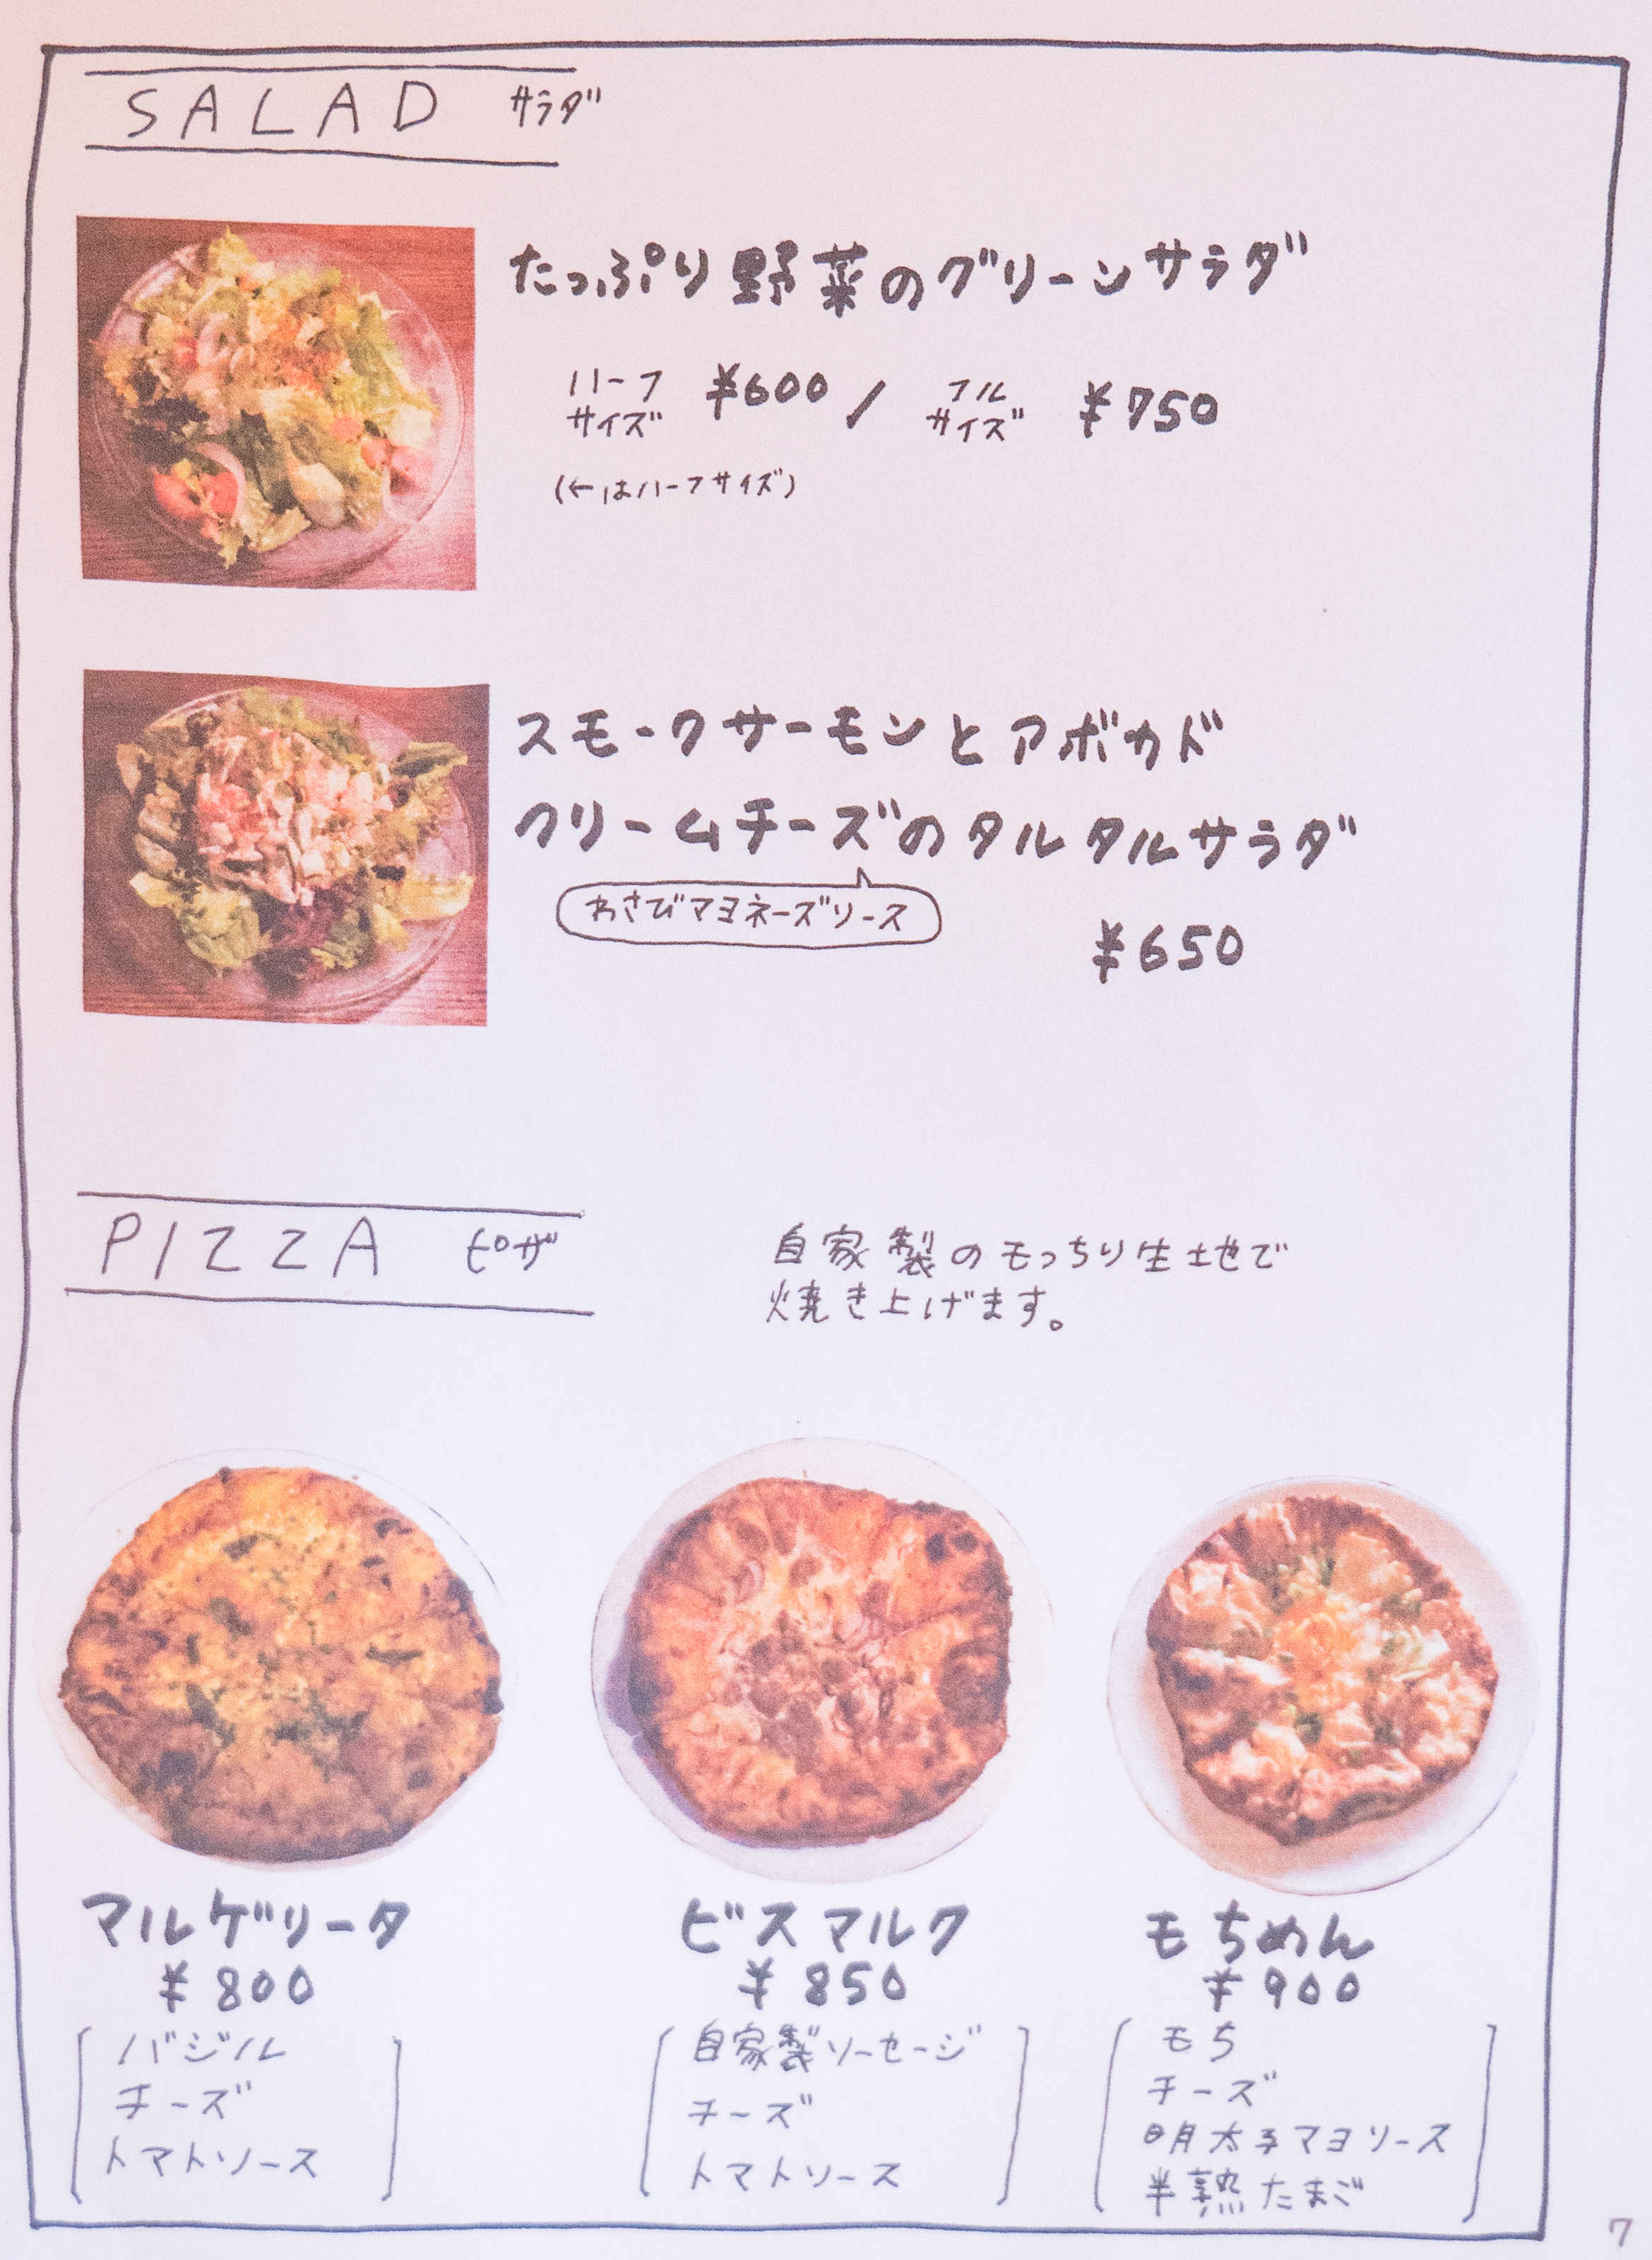 SALAD サラダ
たっぷり野菜のグリーンサラダ
ハーフサイズ ¥600 / フルサイズ ¥750
(←はハーフサイズ)
スモークサーモンとアボカド
クリームチーズのタルタルサラダ
わさびマヨネーズソース
¥650
PIZZA ピザ
自家製のもっちり生地で
焼き上げます。
マルゲリータ
¥800
バジル
チーズ
トマトソース
ビスマルク
¥850
自家製ソーセージ
チーズ
トマトソース
もちめん
¥900
もち
チーズ
明太子マヨソース
半熟たまご
7